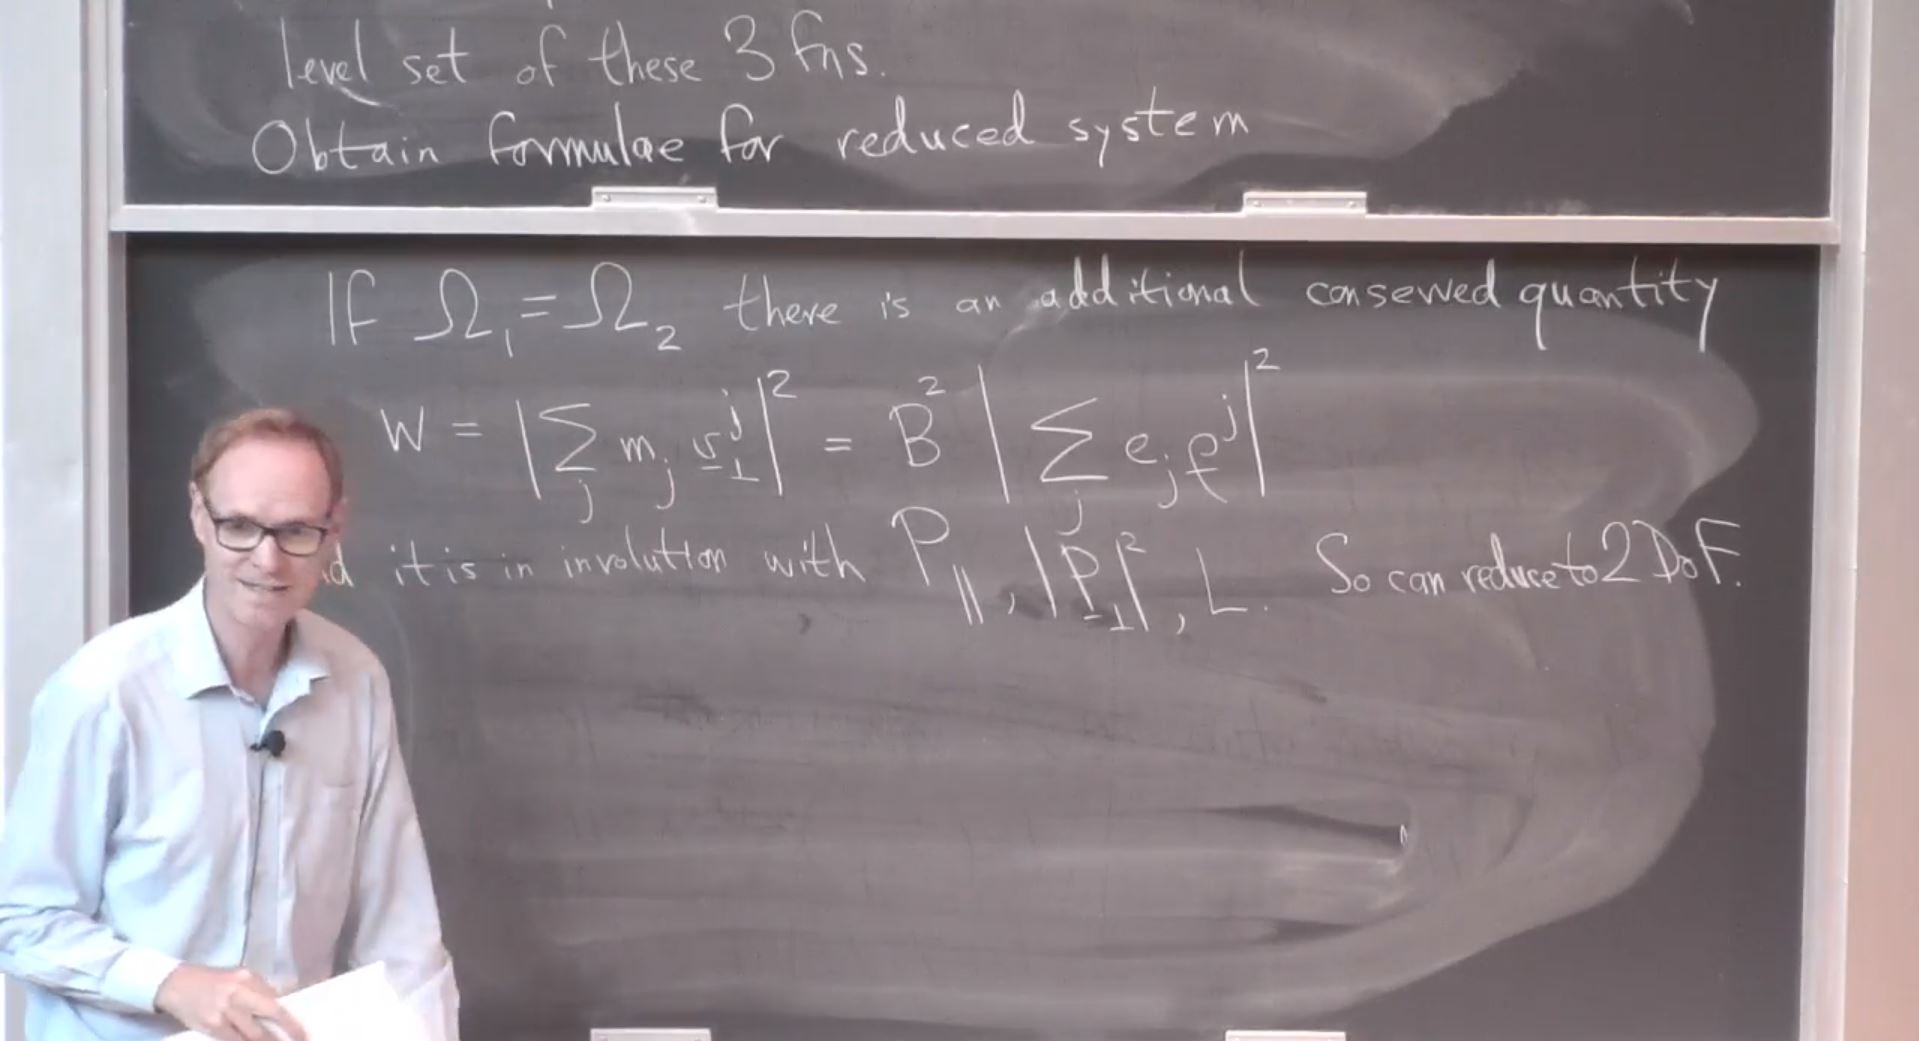 level set of these 3 fns.
Obtain formulae for reduced system
If Ω₁ = Ω₂ there is an additional conserved quantity
W = |∑_j m_j v_⊥^j|² = B² |∑_j e_j ρ^j|²
it is in involution with P_∥, |P_⊥|², L. So can reduce to 2 DoF.